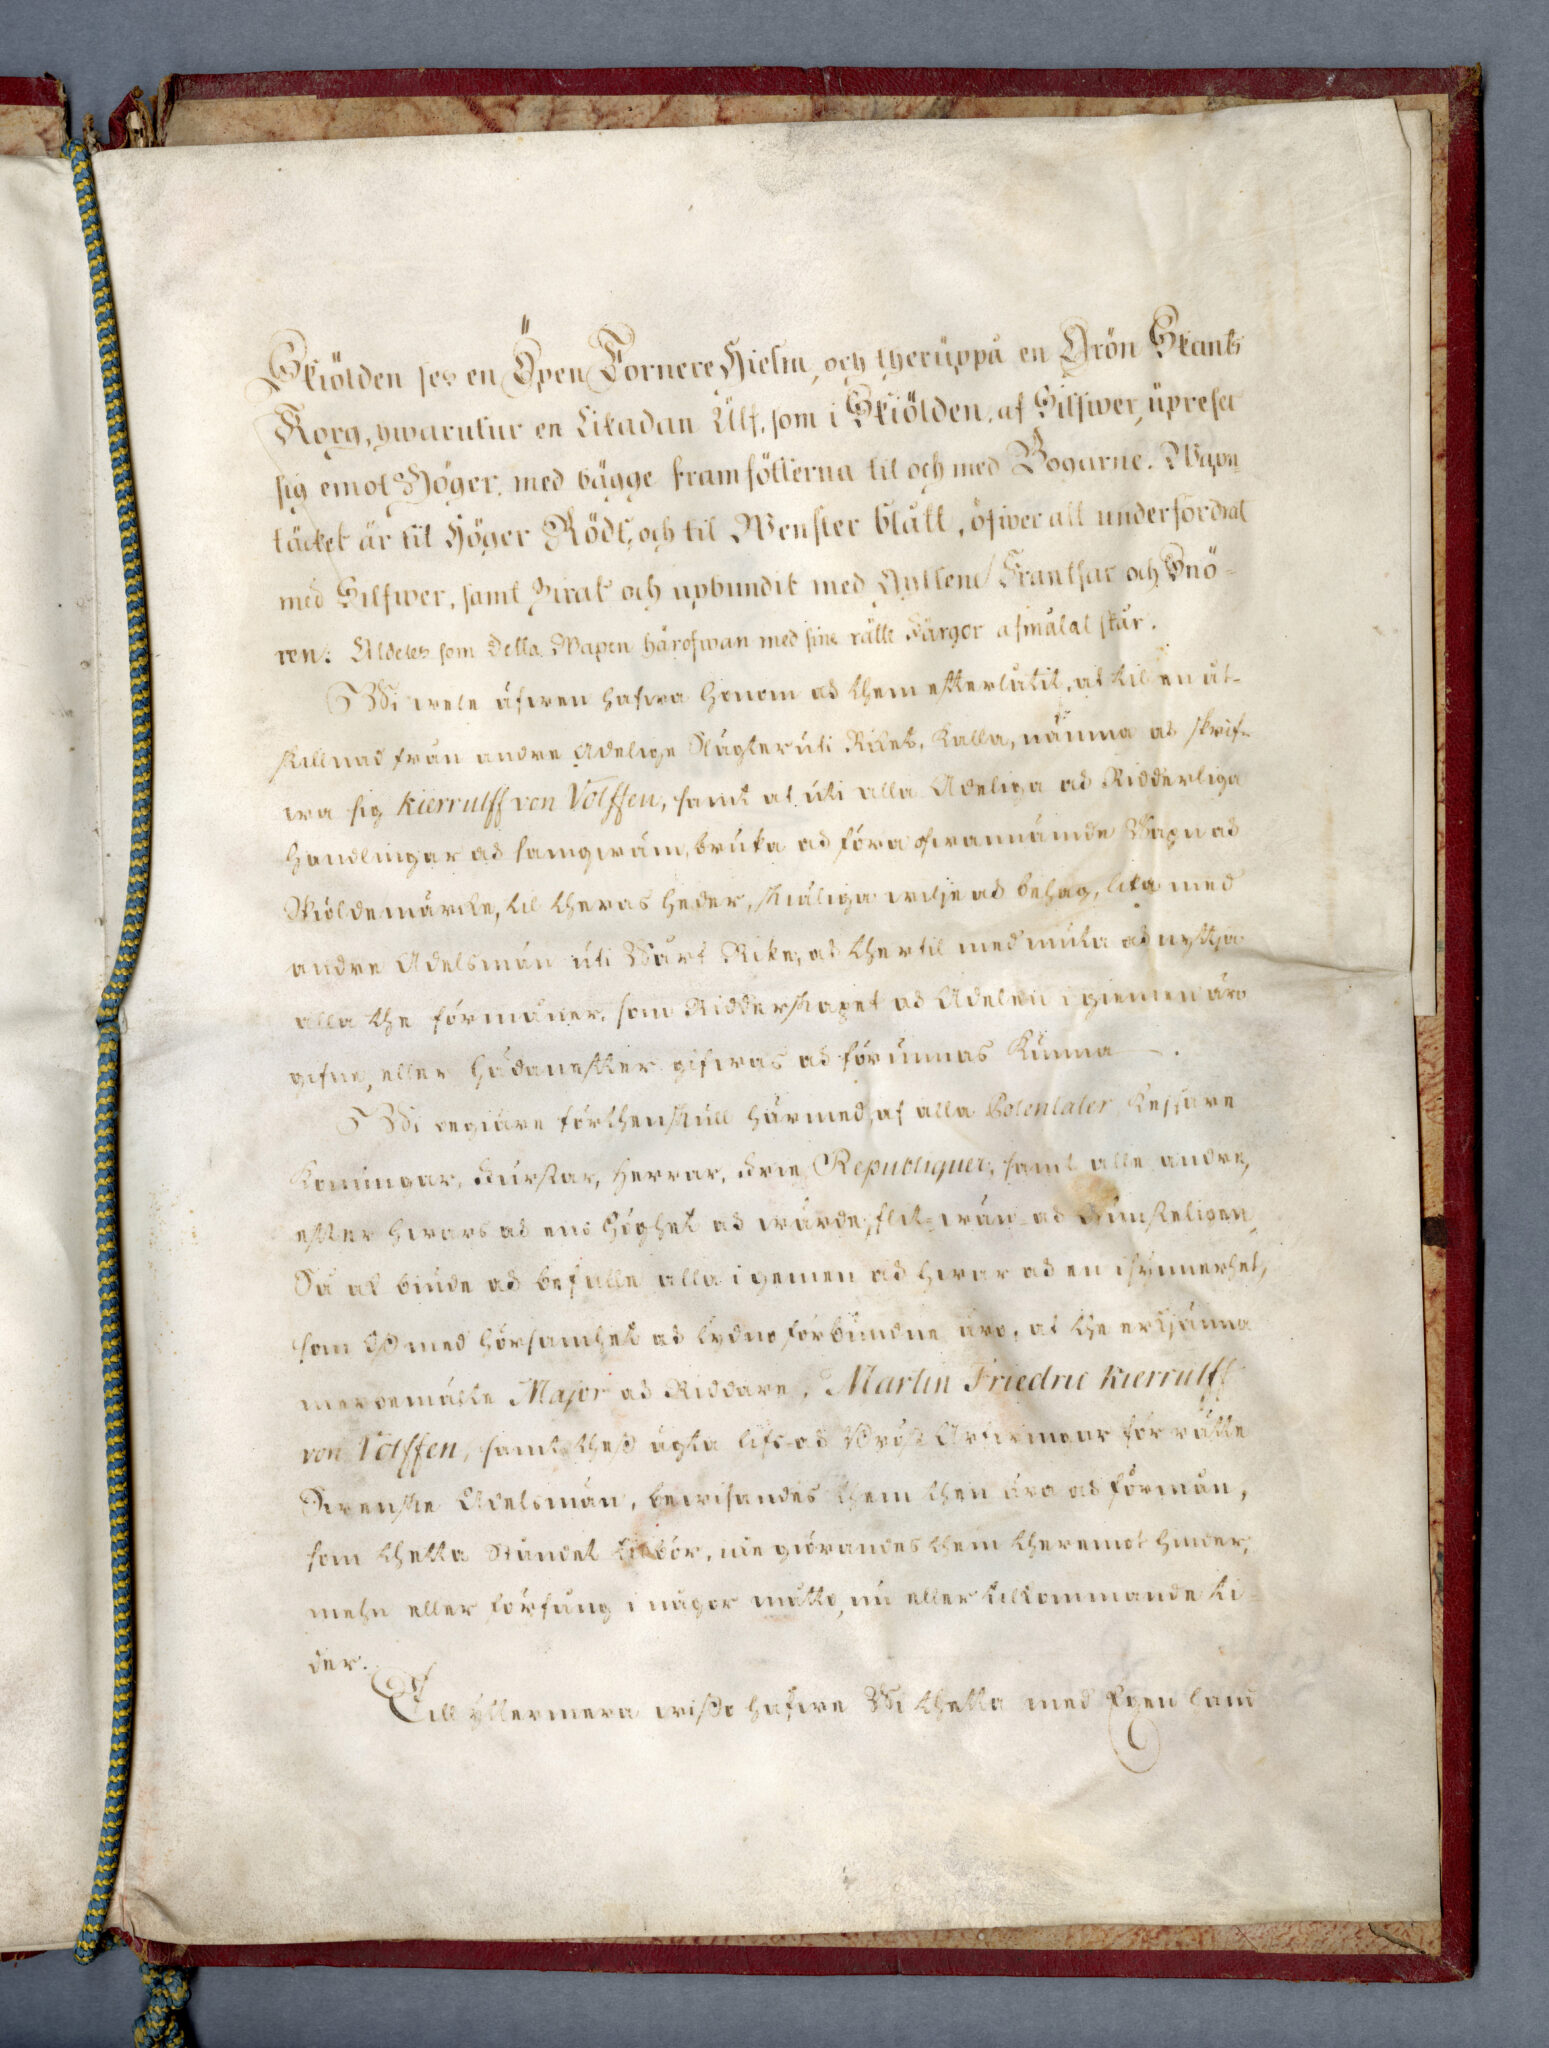 Skiölden ses en Öpen Tornere Hielm, och theruppå en Grön Skants
Korg, hwarutur en Likadan Ulf, som i Skiölden, af Silfwer, upreser
sig emot Höger, med bägge framfötterna til och med Bogarne. Wapn
täcket är til Höger Rödt, och til Wenster blått, öfwer alt underfordrat
med Silfwer, samt Zirat och upbundit med Gyllene Frantsar och Snö-
ren. Aldeles som detta Wapen härofwan med sine rätte Färgor afmålat står.
Wi wele äfwen hafwa Honom och them efterlåtit, at til en åt-
skillnad från andre Adelige Slägter uti Riket, kalla, nämna och skrif-
wa sig Kierrulff von Wolffen, samt at uti alla Adeliga och Ridderliga
Handlingar och samqwäm, bruka och föra ofwannämde Wapn och
Skiöldemärcke, til theras heder, skiäliga wilje och behag, lika med
andre Adelsmän uti Wårt Rike, och ther til med niuta och nyttja
alla the förmåner, som Ridderskapet och Adelen i giemen äro
gifne, eller hädanefter gifwas och förunnas kunna.
Wi begiäre förthenskull härmed, af alla Potentater, Keysare
Konungar, Furstar, Herrar, Frie Republiquer, samt alle andre,
efter hwars och ens höghet och wärde, flit- wän- och Gunsteligen,
Så ock biude och befalle alla i gemen och hwar och en i synnerhet,
som Oß med hörsamhet och lydno förbundne äro, at the erkjänna
merbemälte Major och Riddare, Martin Friedric Kierrulff
von Wolffen, samt theß ägta lifs- och Bröst Arfwingar för rätte
Swenske Adelsmän, bewisandes them then ära och förmån,
som thetta Ståndet tilbör, nie giörandes them theremot hinder,
mehn eller förfång i någor måtto, nu eller tilkommande ti-
der.
Till yttermera wißo hafwe Wi thetta med Egen hand